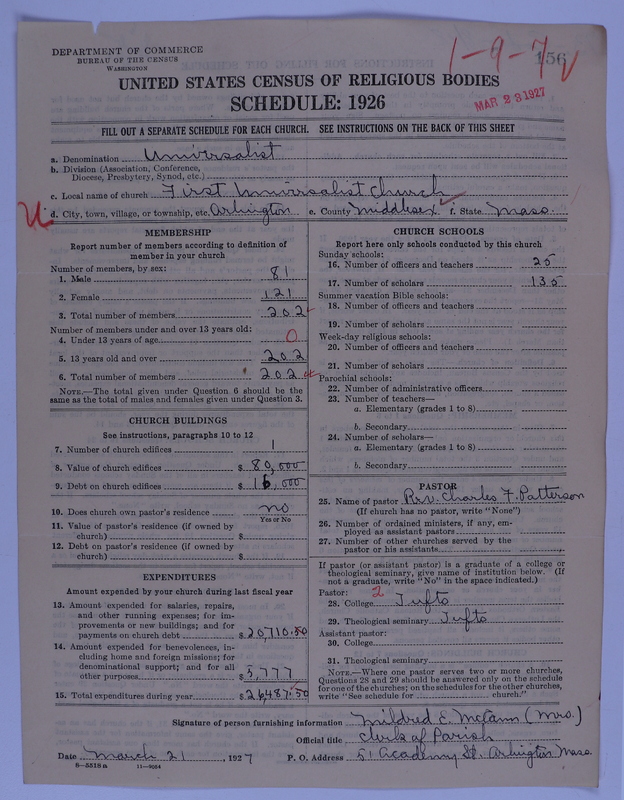 DEPARTMENT OF COMMERCE
BUREAU OF THE CENSUS
WASHINGTON
1-9-7 156
MAR 23 1927
UNITED STATES CENSUS OF RELIGIOUS BODIES
SCHEDULE: 1926
FILL OUT A SEPARATE SCHEDULE FOR EACH CHURCH. SEE INSTRUCTIONS ON THE BACK OF THIS SHEET
a. Denomination Universalist
b. Division (Association, Conference, Diocese, Presbytery, Synod, etc.)
c. Local name of church First Universalist Church
U d. City, town, village, or township, etc. Arlington e. County Middlesex f. State Mass.
MEMBERSHIP
Report number of members according to definition of
member in your church
Number of members, by sex:
1. Male 81
2. Female 121
3. Total number of members 202
Number of members under and over 13 years old:
4. Under 13 years of age 0
5. 13 years old and over 202
6. Total number of members 202
NOTE.—The total given under Question 6 should be the
same as the total of males and females given under Question 3.
CHURCH BUILDINGS
See instructions, paragraphs 10 to 12
7. Number of church edifices 1
8. Value of church edifices $ 80,000
9. Debt on church edifices $ 16,000
10. Does church own pastor's residence no
Yes or No
11. Value of pastor's residence (if owned by
church) $
12. Debt on pastor's residence (if owned by
church) $
EXPENDITURES
Amount expended by your church during last fiscal year
13. Amount expended for salaries, repairs,
and other running expenses; for im-
provements or new buildings; and for
payments on church debt $ 20710.50
14. Amount expended for benevolences, in-
cluding home and foreign missions; for
denominational support; and for all
other purposes $ 5,777
15. Total expenditures during year $ 26487.50
CHURCH SCHOOLS
Report here only schools conducted by this church
Sunday schools:
16. Number of officers and teachers 25
17. Number of scholars 135
Summer vacation Bible schools:
18. Number of officers and teachers
19. Number of scholars
Week-day religious schools:
20. Number of officers and teachers
21. Number of scholars
Parochial schools:
22. Number of administrative officers
23. Number of teachers—
a. Elementary (grades 1 to 8)
b. Secondary
24. Number of scholars—
a. Elementary (grades 1 to 8)
b. Secondary
PASTOR
25. Name of pastor Rev. Charles F. Patterson
(If church has no pastor, write "None")
26. Number of ordained ministers, if any, em-
ployed as assistant pastors
27. Number of other churches served by the
pastor or his assistants
If pastor (or assistant pastor) is a graduate of a college or
theological seminary, give name of institution below. (If
not a graduate, write "No" in the space indicated.)
Pastor: 2
28. College Tufts
29. Theological seminary Tufts
Assistant pastor:
30. College
31. Theological seminary
NOTE.—Where one pastor serves two or more churches,
Questions 28 and 29 should be answered only on the schedule
for one of the churches; on the schedules for the other churches,
write "See schedule for church."
Signature of person furnishing information Mildred E. McCann (Mrs.)
Official title Clerk of Parish
Date March 21, 1927 P. O. Address 51 Academy St. Arlington Mass.
8-5518a 11-9064